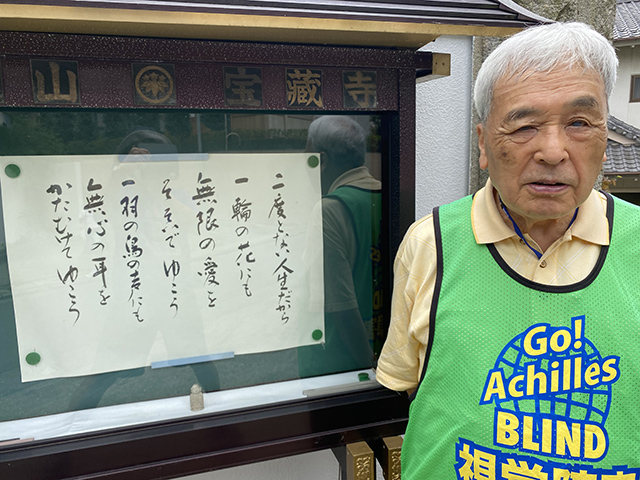 山 宝蔵寺
二度とない人生だから
一輪の花にも
無限の愛を
そそいでゆこう
一羽の鳥の声にも
無心の耳を
かたむけてゆこう
Go!
Achilles
BLIND
視覚障害